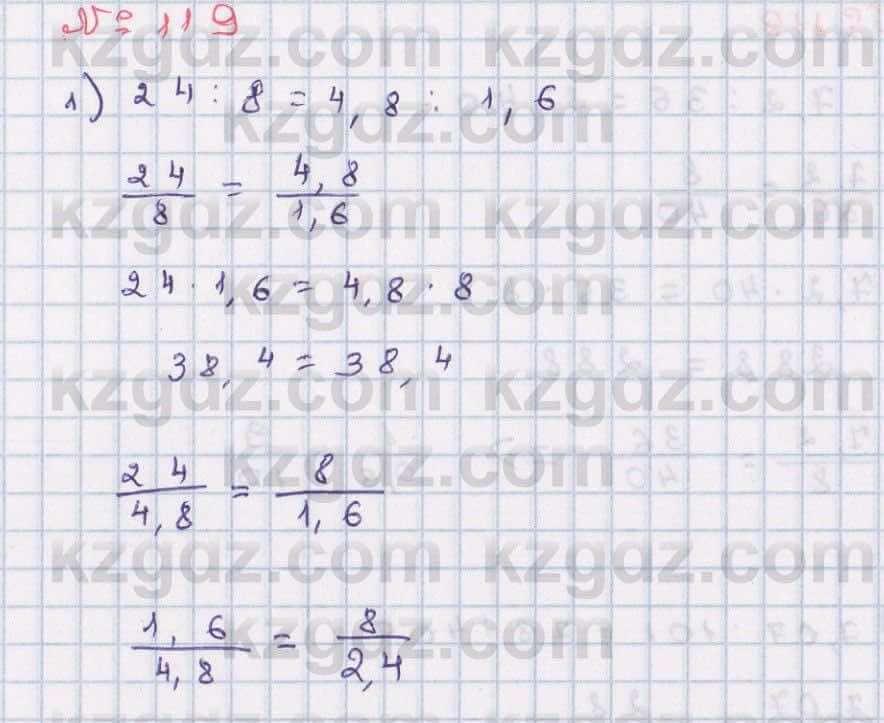 № 119
1) 24 : 8 = 4,8 : 1,6
24/8 = 4,8/1,6
24 · 1,6 = 4,8 · 8
38,4 = 38,4
24/4,8 = 8/1,6
1,6/4,8 = 8/2,4
kzgdz.com kzgdz.com
kzgdz.com
kzgdz.com kzgdz.com
kzgdz.com
kzgdz.com kzgdz.com
kzgdz.com
kzgdz.com kzgdz.com
kzgdz.com
kzgdz.com kzgdz.com